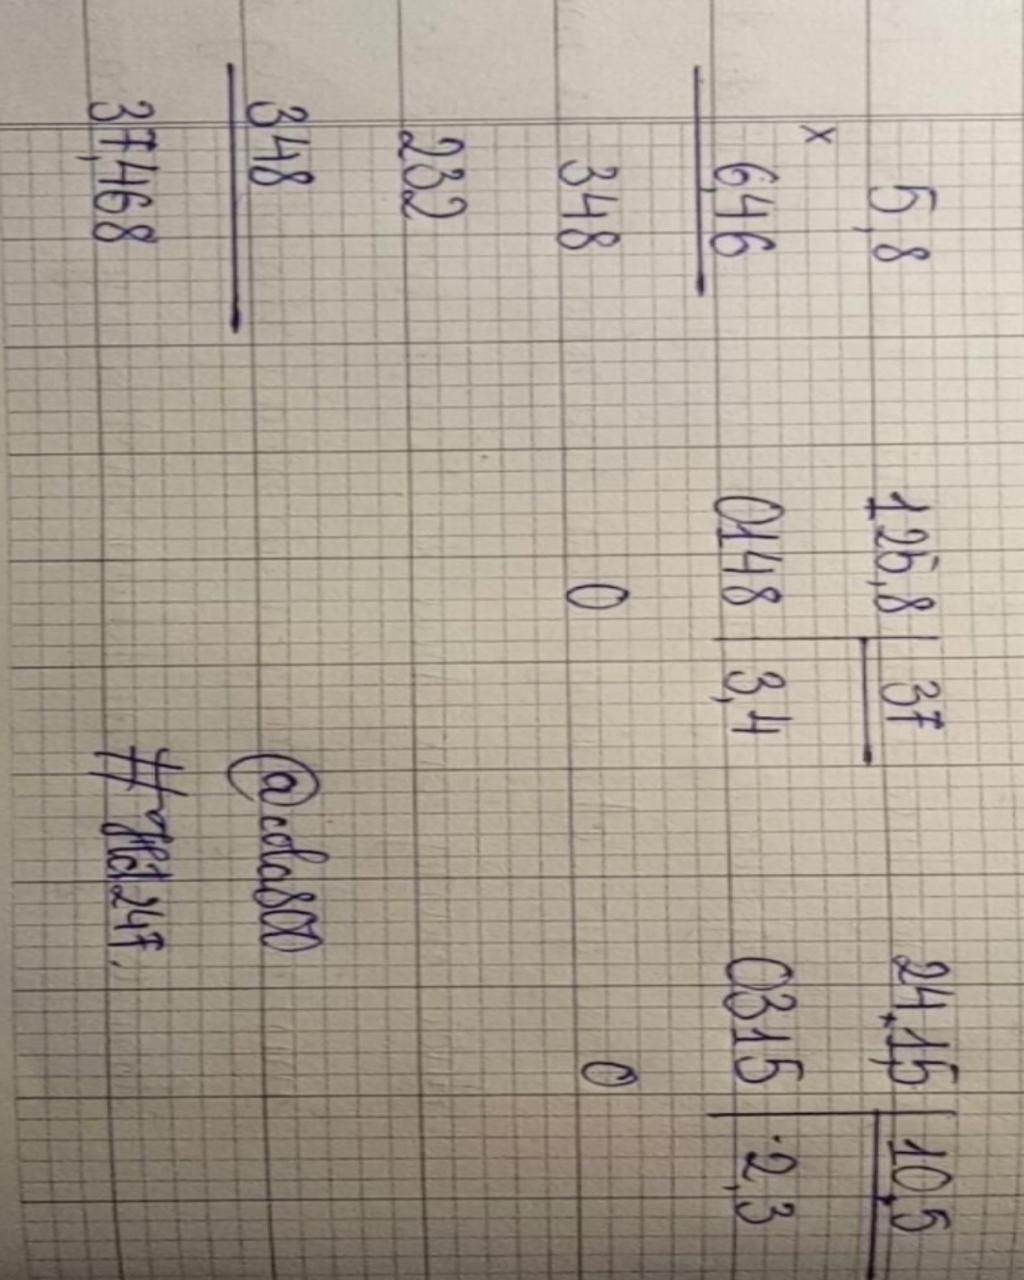 5,8
x
6,46
348
232
348
37,468
125,8 37
0148 3,4
0
24,15 10,5
0315 2,3
0
@cola800